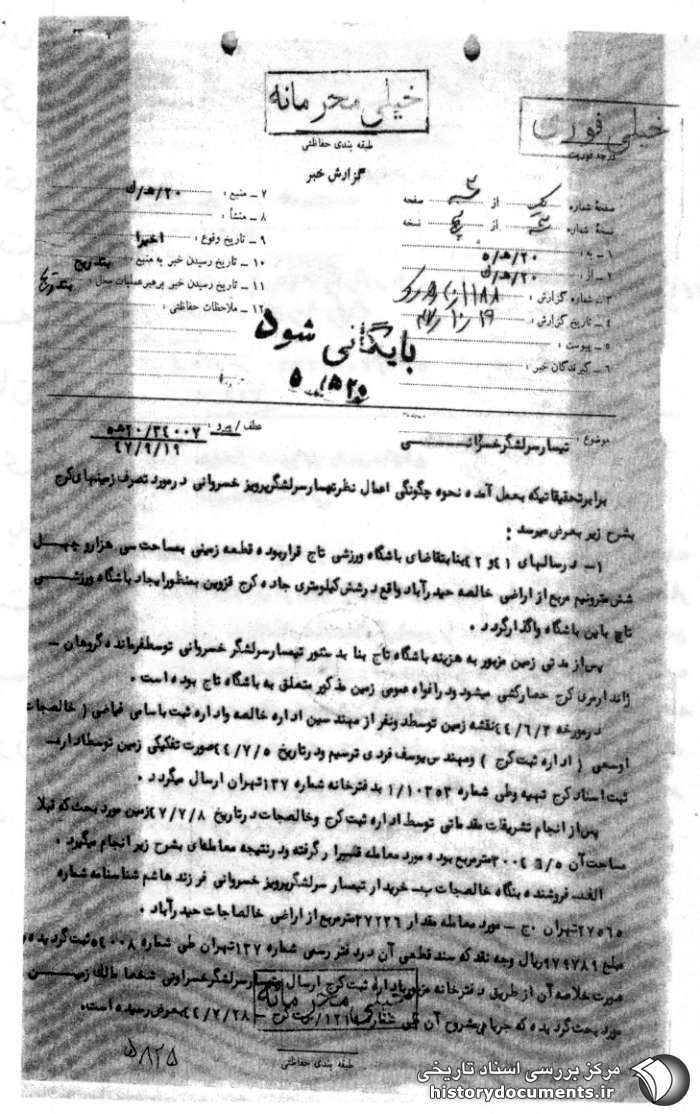 خیلی محرمانه
خیلی فوری
طبقه بندی حفاظتی
درجه فوریت
گزارش خبر
صفحه شماره یک از ۳ صفحه
نسخه شماره ۳ از پنج نسخه
۱ – به : ۲۰/ه‍/۵
۲ – از : ۲۰/ه‍/ك
۳ – شماره گزارش :
۴ – تاریخ گزارش : ۴۷/۱۰/۱۹
۵ – پیوست :
۶ – گیرندگان خبر :
۷ – منبع : ۲۰/ه‍/ك
۸ – منشأ :
۹ – تاریخ وقوع : اخیرا
۱۰ – تاریخ رسیدن خبر به منبع : بتدریج
۱۱ – تاریخ رسیدن خبر برهبرعملیات محل : بتدریج
۱۲ – ملاحظات حفاظتی :
بایگانی شود
۵۲۰/۵
موضوع : تیمسار سرلشگر خسروانی
عطف / پیرو : ۵۲۰/۳۴۰۰۷
۴۷/۹/۱۹
برابر تحقیقاتیکه بعمل آمده نحوه چگونگی اعمال نظر تیمسار سرلشگر پرویز خسروانی در مورد تصرف زمینهای کرج
بشرح زیر بعرض میرسد :
۱- در سالهای ۴۱ و ۴۲ بنا بتقاضای باشگاه ورزشی تاج قرار بوده قطعه زمینی بمساحت سی هزار و چهل
شش متر و نیم مربع از اراضی خالصه حیدرآباد واقع در شش کیلومتری جاده کرج قزوین بمنظور ایجاد باشگاه ورزشی
تاج باین باشگاه واگذار گردد .
پس از مدتی زمین مزبور به هزینه باشگاه تاج بنا بدستور تیمسار سرلشگر خسروانی توسط فرمانده گروهان –
ژاندارمری کرج حصارکشی میشود و در افواه عمومی زمین مذکور متعلق به باشگاه تاج بوده است .
در مورخه ۴۴/۶/۳ نقشه زمین توسط دو نفر از مهندسین اداره خالصه و اداره ثبت باسامی فیاضی ( خالصجات
اوسعی ( اداره ثبت کرج ) و مهندس یوسف فردی ترسیم و در تاریخ ۴۴/۷/۵ صورت تفکیکی زمین توسط اداره
ثبت اسناد کرج تهیه و طی شماره ۱/۱۰۳۵۳ بدفترخانه شماره ۱۳۷ تهران ارسال میگردد .
پس از انجام تشریفات مقدماتی توسط اداره ثبت کرج و خالصجات در تاریخ ۴۷/۷/۸ زمین مورد بحث که قبلا
مساحت آن مترمربع بوده مورد معامله قرار گرفته و در نتیجه معامله‌ای بشرح زیر انجام میگیرد .
الف- فروشنده بنگاه خالصجات ب- خریدار تیمسار سرلشگر پرویز خسروانی فرزند هاشم شناسنامه شماره
۲۷۵۶۵ تهران . ج – مورد معامله مقدار ۲۷۲۳۶ مترمربع از اراضی خالصجات حیدرآباد .
مبلغ ۹۷۹۷۸۹ ریال وجه نقد که سند قطعی آن در دفتر رسمی شماره ۱۳۷ تهران طی شماره ۵۴۰۰۸ ثبت گردیده و
صورت خلاصه آن از طریق دفترخانه مزبور باداره ثبت کرج ارسال سرلشگر خسروانی شخصا مالك زمین
مورد بحث گردیده که جریان مشروح آن طی شماره ثبت کرج – ۴۴/۷/۲۸ بعرض رسیده است.
خیلی محرمانه
طبقه بندی حفاظتی
۵۸۲۵
مرکز بررسی اسناد تاریخی
historydocuments.ir